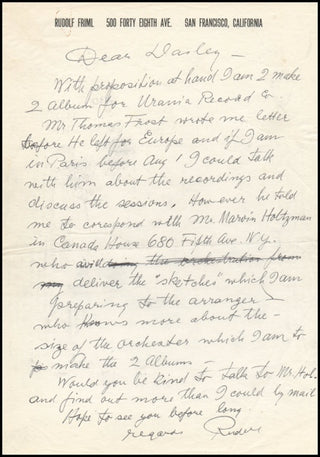 RUDOLF FRIML 500 FORTY EIGHTH AVE. SAN FRANCISCO, CALIFORNIA
Dear Dailey —
With proposition at hand I am 2 make
2 Album for Urania Record Co.
Mr Thomas Frost wrote me letter
before He left for Europe and if I am
in Paris before Aug 1 I could talk
with him about the recordings and
discuss the sessions. However he told
me to corespond with Mr. Marvin Holtzman
in Canada House 680 Fifth Ave. N.Y.
who the orchestration from
deliver the "sketches" which I am
preparing to the arranger —
who knows more about the —
size of the orchester which I am to
make the 2 Albums —
Would you be kind to talk to Mr. Hol.
and find out more than I could by mail
Hope to see you before long
regards Rudolf